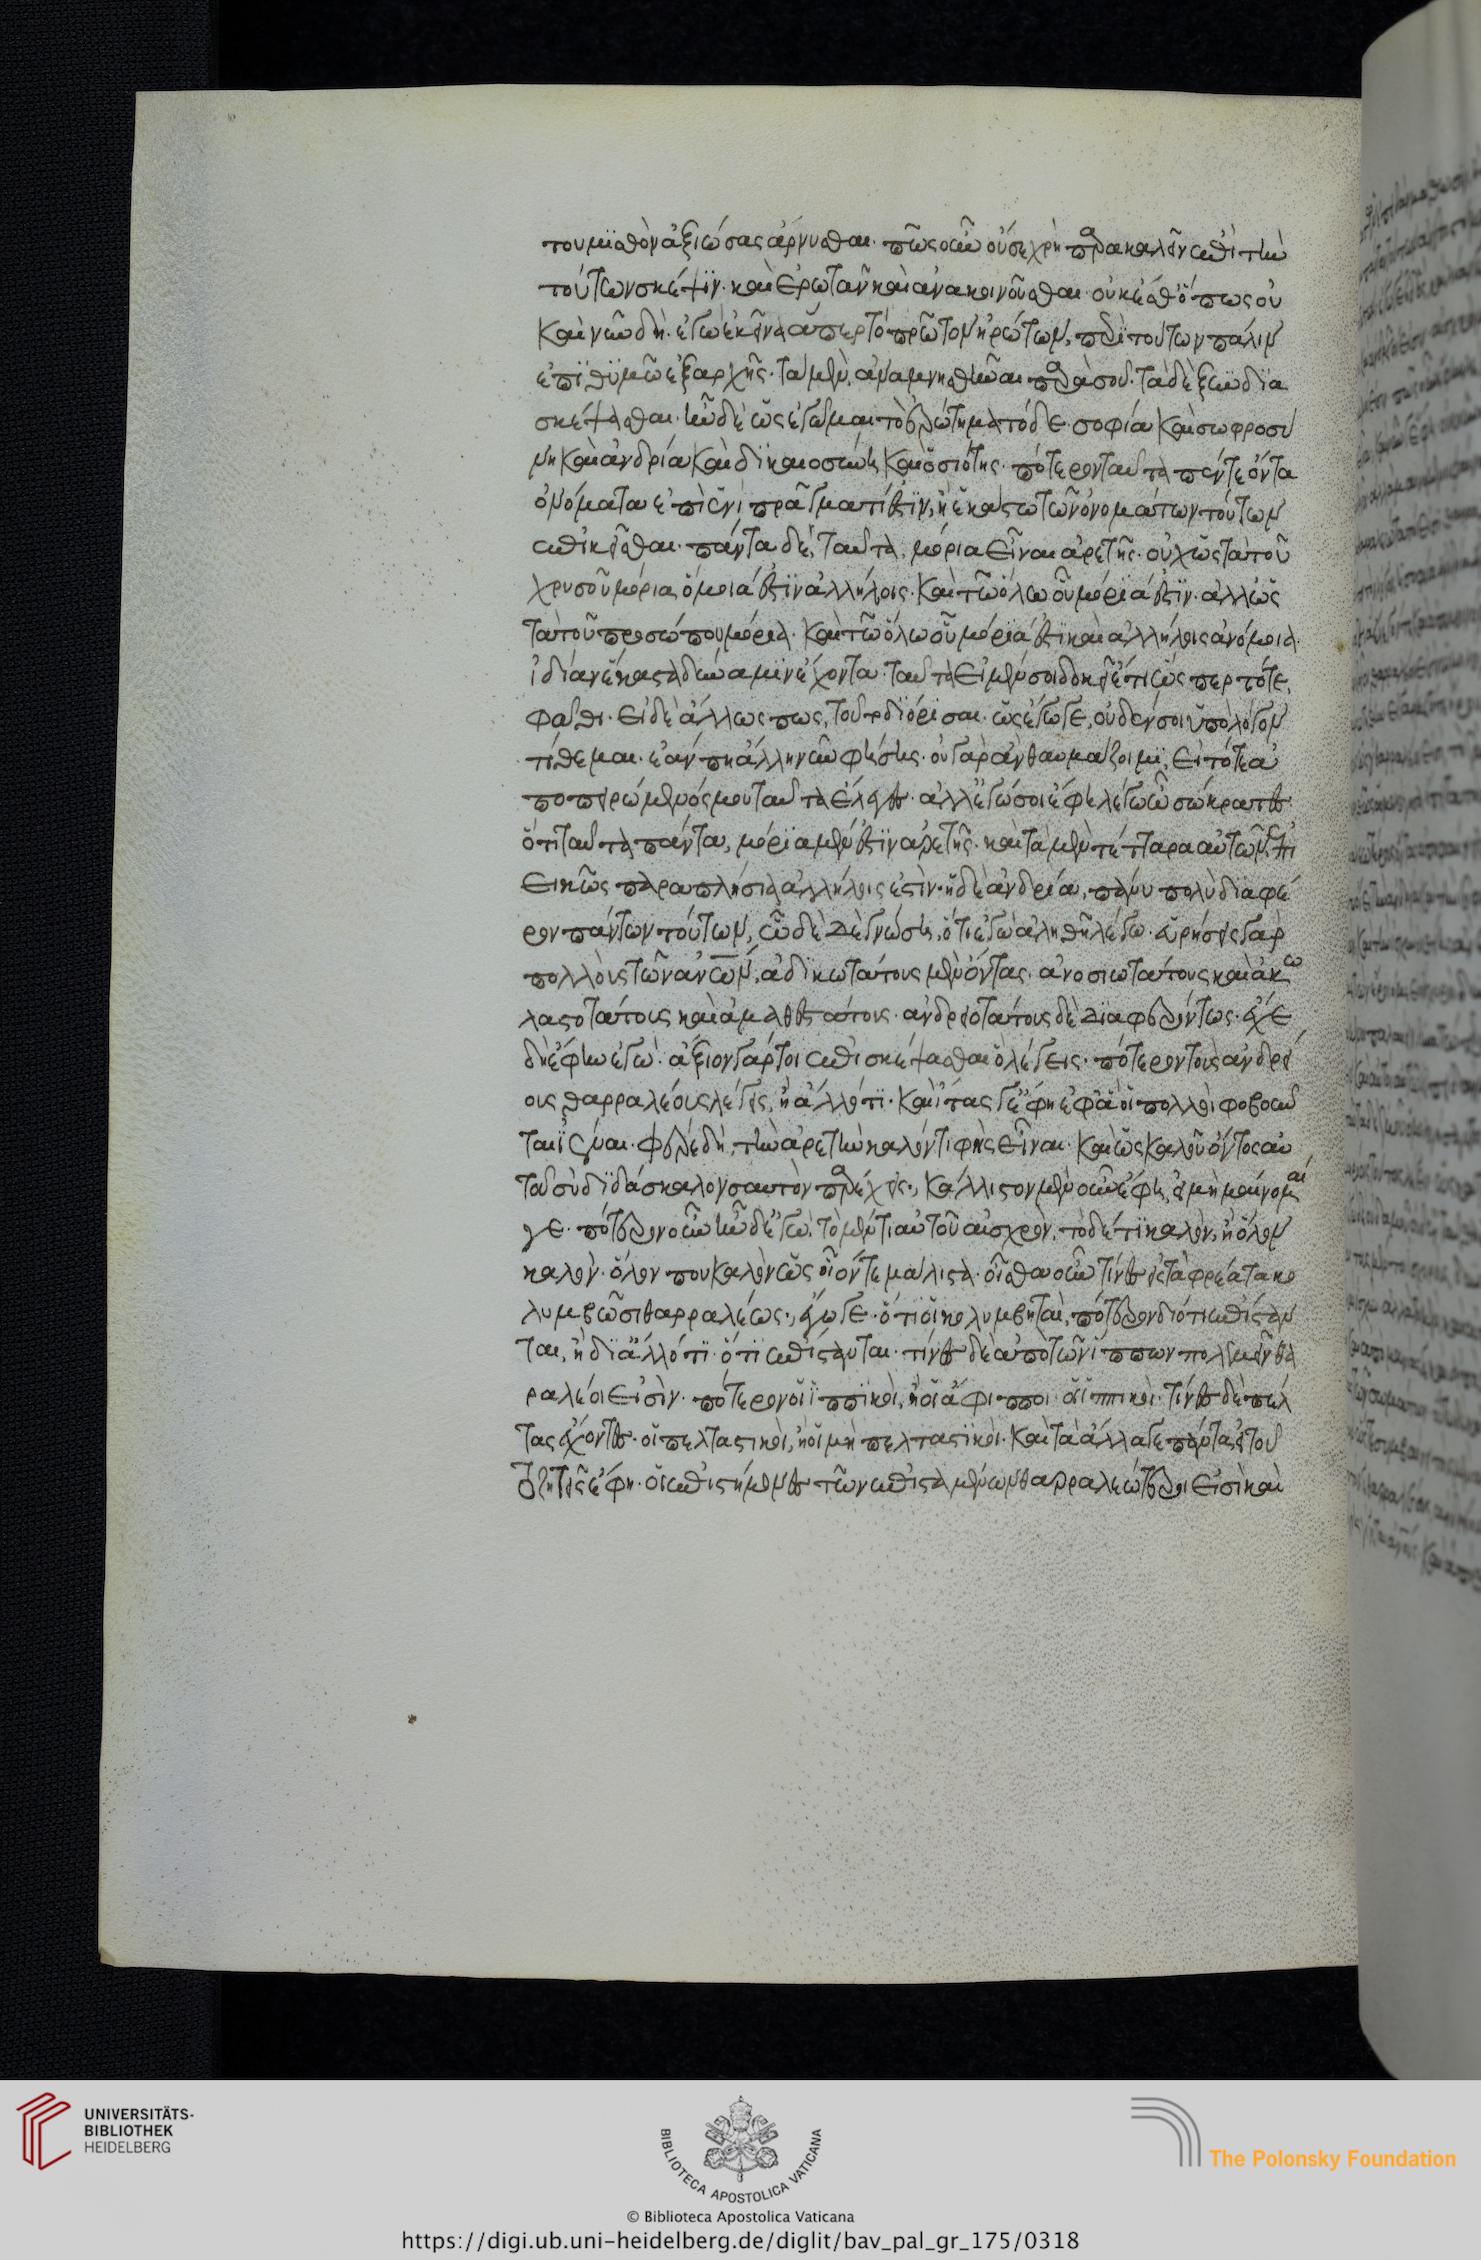 του μισθὸν ἀξιώσας ἄρνυσθαι. πῶς οὖν οὔ σε χρὴ παρακαλεῖν ἐπὶ τὴν
τούτων σκέψιν. καὶ ἐρωτᾶν καὶ ἀνακοινοῦσθαι. οὐκ ἔσθ' ὅπως οὔ
καὶ νῦν δὴ. ἐγὼ ἐκεῖνα ἅπερ τὸ πρῶτον ἠρώτων, περὶ τούτων πάλιν
ἐπιθυμῶ ἐξαρχῆς. τὰ μὲν, ἀναμνησθῆναι παρὰ σοῦ. τὰ δὲ ξυνδια
σκέψασθαι. ἦν δὲ ὡς ἐγῷμαι τὸ ἐρώτημα τόδε. σοφία καὶ σωφροσύ
νη καὶ ἀνδρία καὶ δικαιοσύνη καὶ ὁσιότης. πότερον ταῦτα πέντε ὄντα
ὀνόματα ἐπὶ ἑνὶ πράγματί ἐστιν, ἢ ἑκάστω τῶν ὀνομάτων τούτων
ἐπικεῖσθαι. πάντα δὲ ταῦτα, μόρια εἶναι ἀρετῆς. οὐχ ὡς τὰ τοῦ
χρυσοῦ μόρια ὅμοιά ἐστιν ἀλλήλοις. καὶ τῶ ὅλω οὗ μόριά ἐστιν. ἀλλ' ὡς
τὰ τοῦ προσώπου μόρια. καὶ τῶ ὅλω οὗ μόριά ἐστι καὶ ἀλλήλοις ἀνόμοια.
ἰδίαν ἕκαστα δύναμιν ἔχοντα. ταῦτα εἰ μέν σοι δοκεῖ ἔτι ὥσπερ τότε,
φάθι. εἰ δὲ ἄλλως πως, τοῦτο διόρισαι. ὡς ἔγωγε, οὐδέν σοι ὑπόλογον
τίθεμαι. ἐάν πη ἄλλη νῦν φήσης. οὐ γὰρ ἂν θαυμάζοιμι, εἰ τότε ἀ
ποπειρώμενός μου ταῦτα ἔλεγες. ἀλλ' ἐγώ σοι ἔφη λέγω ὦ σώκρατες
ὅτι ταῦτα πάντα, μόρια μέν ἐστιν ἀρετῆς. καὶ τὰ μὲν τέτταρα αὐτῶν, ἐπι
εικῶς παραπλήσια ἀλλήλοις ἐστὶν. ἡ δὲ ἀνδρεία, πάνυ πολὺ διαφέ
ρον πάντων τούτων, ὧδε δὲ γνώση, ὅτι ἐγὼ ἀληθῆ λέγω. εὑρήσεις γὰρ
πολλοὺς τῶν ἀνων, ἀδικωτάτους μὲν ὄντας. ἀνοσιωτάτους καὶ ἀκω
λαστοτάτους καὶ ἀμαθεστάτους. ἀνδρειοτάτους δὲ διαφερόντως. ἔχε
δὴ ἔφην ἐγὼ. ἄξιον γάρ τοι ἐπισκέψασθαι ὃ λέγεις. πότερον τοὺς ἀνδρεί
ους θαρραλέους λέγεις, ἢ ἄλλό τι. καὶ ἴτας γ' ἔφη ἐφ' ἃ οἱ πολλοὶ φοβοῦν
ται ἰέναι. φέρε δὴ, τὴν ἀρετὴν καλόν τι φὴς εἶναι. καὶ ὡς καλοῦ ὄντος αὐ
τοῦ σὺ διδάσκαλον σαυτὸν παρέχεις., κάλλιστον μὲν οὖν ἔφη, εἰ μὴ μαίνομαί
γε. πότερον οὖν ἦν δ' ἐγὼ, τὸ μέν τι αὐτοῦ αἰσχρὸν, τὸ δέ τι καλὸν, ἢ ὅλον
καλὸν. ὅλον που καλὸν ὡς οἷόν τε μάλιστα. οἶσθα οὖν τίνες εἰς τὰ φρέατα κο
λυμβῶσι θαρραλέως., ἔγωγε. ὅτι οἱ κολυμβηταὶ, πότερον διότι ἐπίσταν
ται, ἢ δι' ἄλλό τι. ὅτι ἐπίστανται. τίνες δὲ ἀπὸ τῶν ἵππων πολεμεῖν θα
ραλέοι εἰσὶν. πότερον οἱ ἱππικοὶ, ἢ οἱ ἄφιπποι. οἱ ἱππικοὶ. τίνες δὲ πέλ
τας ἔχοντες. οἱ πελταστικοὶ, ἢ οἱ μὴ πελταστικοὶ. καὶ τὰ ἄλλά γε πάντα, εἰ τοῦ
το ζητεῖς ἔφη. οἱ ἐπιστήμονες τῶν μὴ ἐπισταμένων θαρραλεώτεροι εἰσὶ καὶ
UNIVERSITÄTS-
BIBLIOTHEK
HEIDELBERG
BIBLIOTECA APOSTOLICA VATICANA
The Polonsky Foundation
© Biblioteca Apostolica Vaticana
https://digi.ub.uni-heidelberg.de/diglit/bav_pal_gr_175/0318